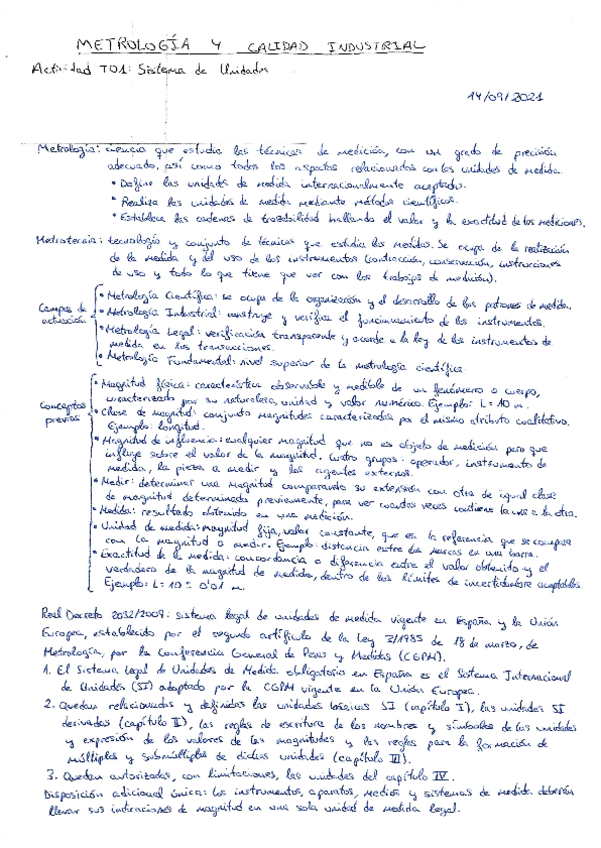 METROLOGÍA Y CALIDAD INDUSTRIAL
Actividad T01: Sistema de Unidades
14/09/2021
Metrología: ciencia que estudia las técnicas de medición, con un grado de precisión
adecuado, así como todos los aspectos relacionados con las unidades de medida.
• Define las unidades de medida internacionalmente aceptadas.
• Realiza las unidades de medida mediante métodos científicos.
• Establece las cadenas de trazabilidad hallando el valor y la exactitud de las mediciones.
Metrotecnia: tecnología y conjunto de técnicas que estudia las medidas. Se ocupa de la realización
de la medida y del uso de los instrumentos (contrucción, conservación, instrucciones
de uso y todo lo que tiene que ver con los trabajos de medición).
Campos de actuación
• Metrología Científica: se ocupa de la organización y el desarrollo de los patrones de medida.
• Metrología Industrial: construye y verifica el funcionamiento de los instrumentos.
• Metrología Legal: verificación transparente y acorde a la ley de los instrumentos de
medida en las transacciones.
• Metrología Fundamental: nivel superior de la metrología científica.
Conceptos previos
• Magnitud física: característica observable y medible de un fenómeno o cuerpo,
caracterizado por su naturaleza, unidad y valor numérico. Ejemplo: L = 10 m.
• Clase de magnitud: conjunto magnitudes caracterizadas por el mismo atributo cualitativo.
Ejemplo: longitud.
• Magnitud de influencia: cualquier magnitud que no es objeto de medición pero que
influye sobre el valor de la magnitud. Cuatro grupos: operador, instrumento de
medida, la pieza a medir y los agentes externos.
• Medir: determinar una magnitud comparando su extensión con otra de igual clase
de magnitud determinada previamente, para ver cuantas veces contiene la una a la otra.
• Medida: resultado obtenido en una medición.
• Unidad de medida: magnitud fija, valor constante, que es la referencia que se compara
con la magnitud a medir. Ejemplo: distancia entre dos marcas en una barra.
• Exactitud de la medida: concordancia o diferencia entre el valor obtenido y el
verdadero de la magnitud de medida, dentro de los límites de incertidumbre aceptables
Ejemplo: L = 10 ± 0'01 m.
Real Decreto 2032/2009: sistema legal de unidades de medida vigente en España y la Unión
Europea, establecido por el segundo artífículo de la Ley 3/1985 de 18 de marzo, de
Metrología, por la Conferencia General de Pesas y Medidas (CGPM).
1. El Sistema Legal de Unidades de Medida obligatorio en España es el Sistema Internacional
de Unidades (SI) adaptado por la CGPM vigente en la Unión Europea.
2. Quedan relacionados y definidas las unidades básicas SI (capítulo I), las unidades SI
derivadas (capítulo II), las reglas de escritura de los nombres y símbolos de las unidades
y expresión de los valores de las magnitudes y las reglas para la formación de
múltiplos y submúltiplos de dichas unidades (capítulo III).
3. Quedan autorizadas, con limitaciones, las unidades del capítulo IV.
Disposición adicional única: los instrumentos, aparatos, medios y sistemas de medida deberán
llevar sus indicaciones de magnitud en una sola unidad de medida legal.